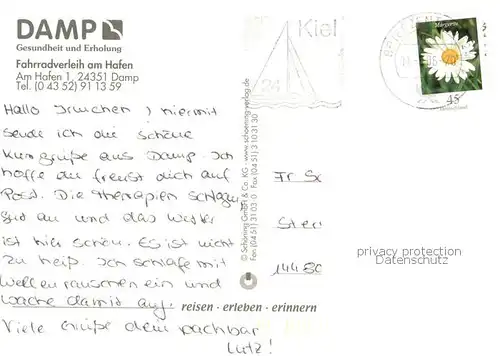 DAMP
Gesundheit und Erholung
Fahrradverleih am Hafen
Am Hafen 1, 24351 Damp
Tel. (0 43 52) 91 13 59
Hallo Irmchen, hiermit
sende ich die schöne
Kurgrüße aus Damp. Ich
hoffe du freust dich auf
Post. Die Therapien schlagen
gut an und das Wetter
ist hier schön. Es ist nicht
zu heiß. Ich schlafe mit
Wellenrauschen ein und
wache damit auf.
Viele Grüße dem nachbar
Lutz!
reisen · erleben · erinnern
© Schöning GmbH & Co. KG · www.schoening-verlag.de
Fon (04 51) 31 03 0 Fax (04 51) 3 10 31 30
Kiel
24
Margerite
45
Deutschland
Fr. Sc
Ster
144
privacy protection
Datenschutz